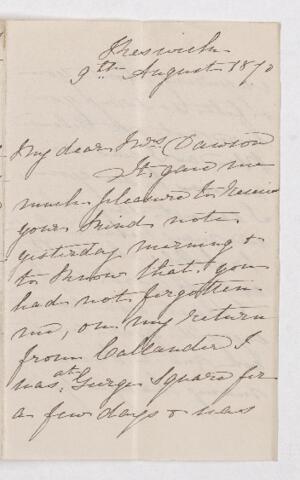 Kreswick
9th August 1870
My dear Mrs Dawson
It gave me
much pleasure to receive
your kind note
yesterday morning &
to know that you
had not forgotten
me, on my return
from Callander I
was at George Square for
a few days & was